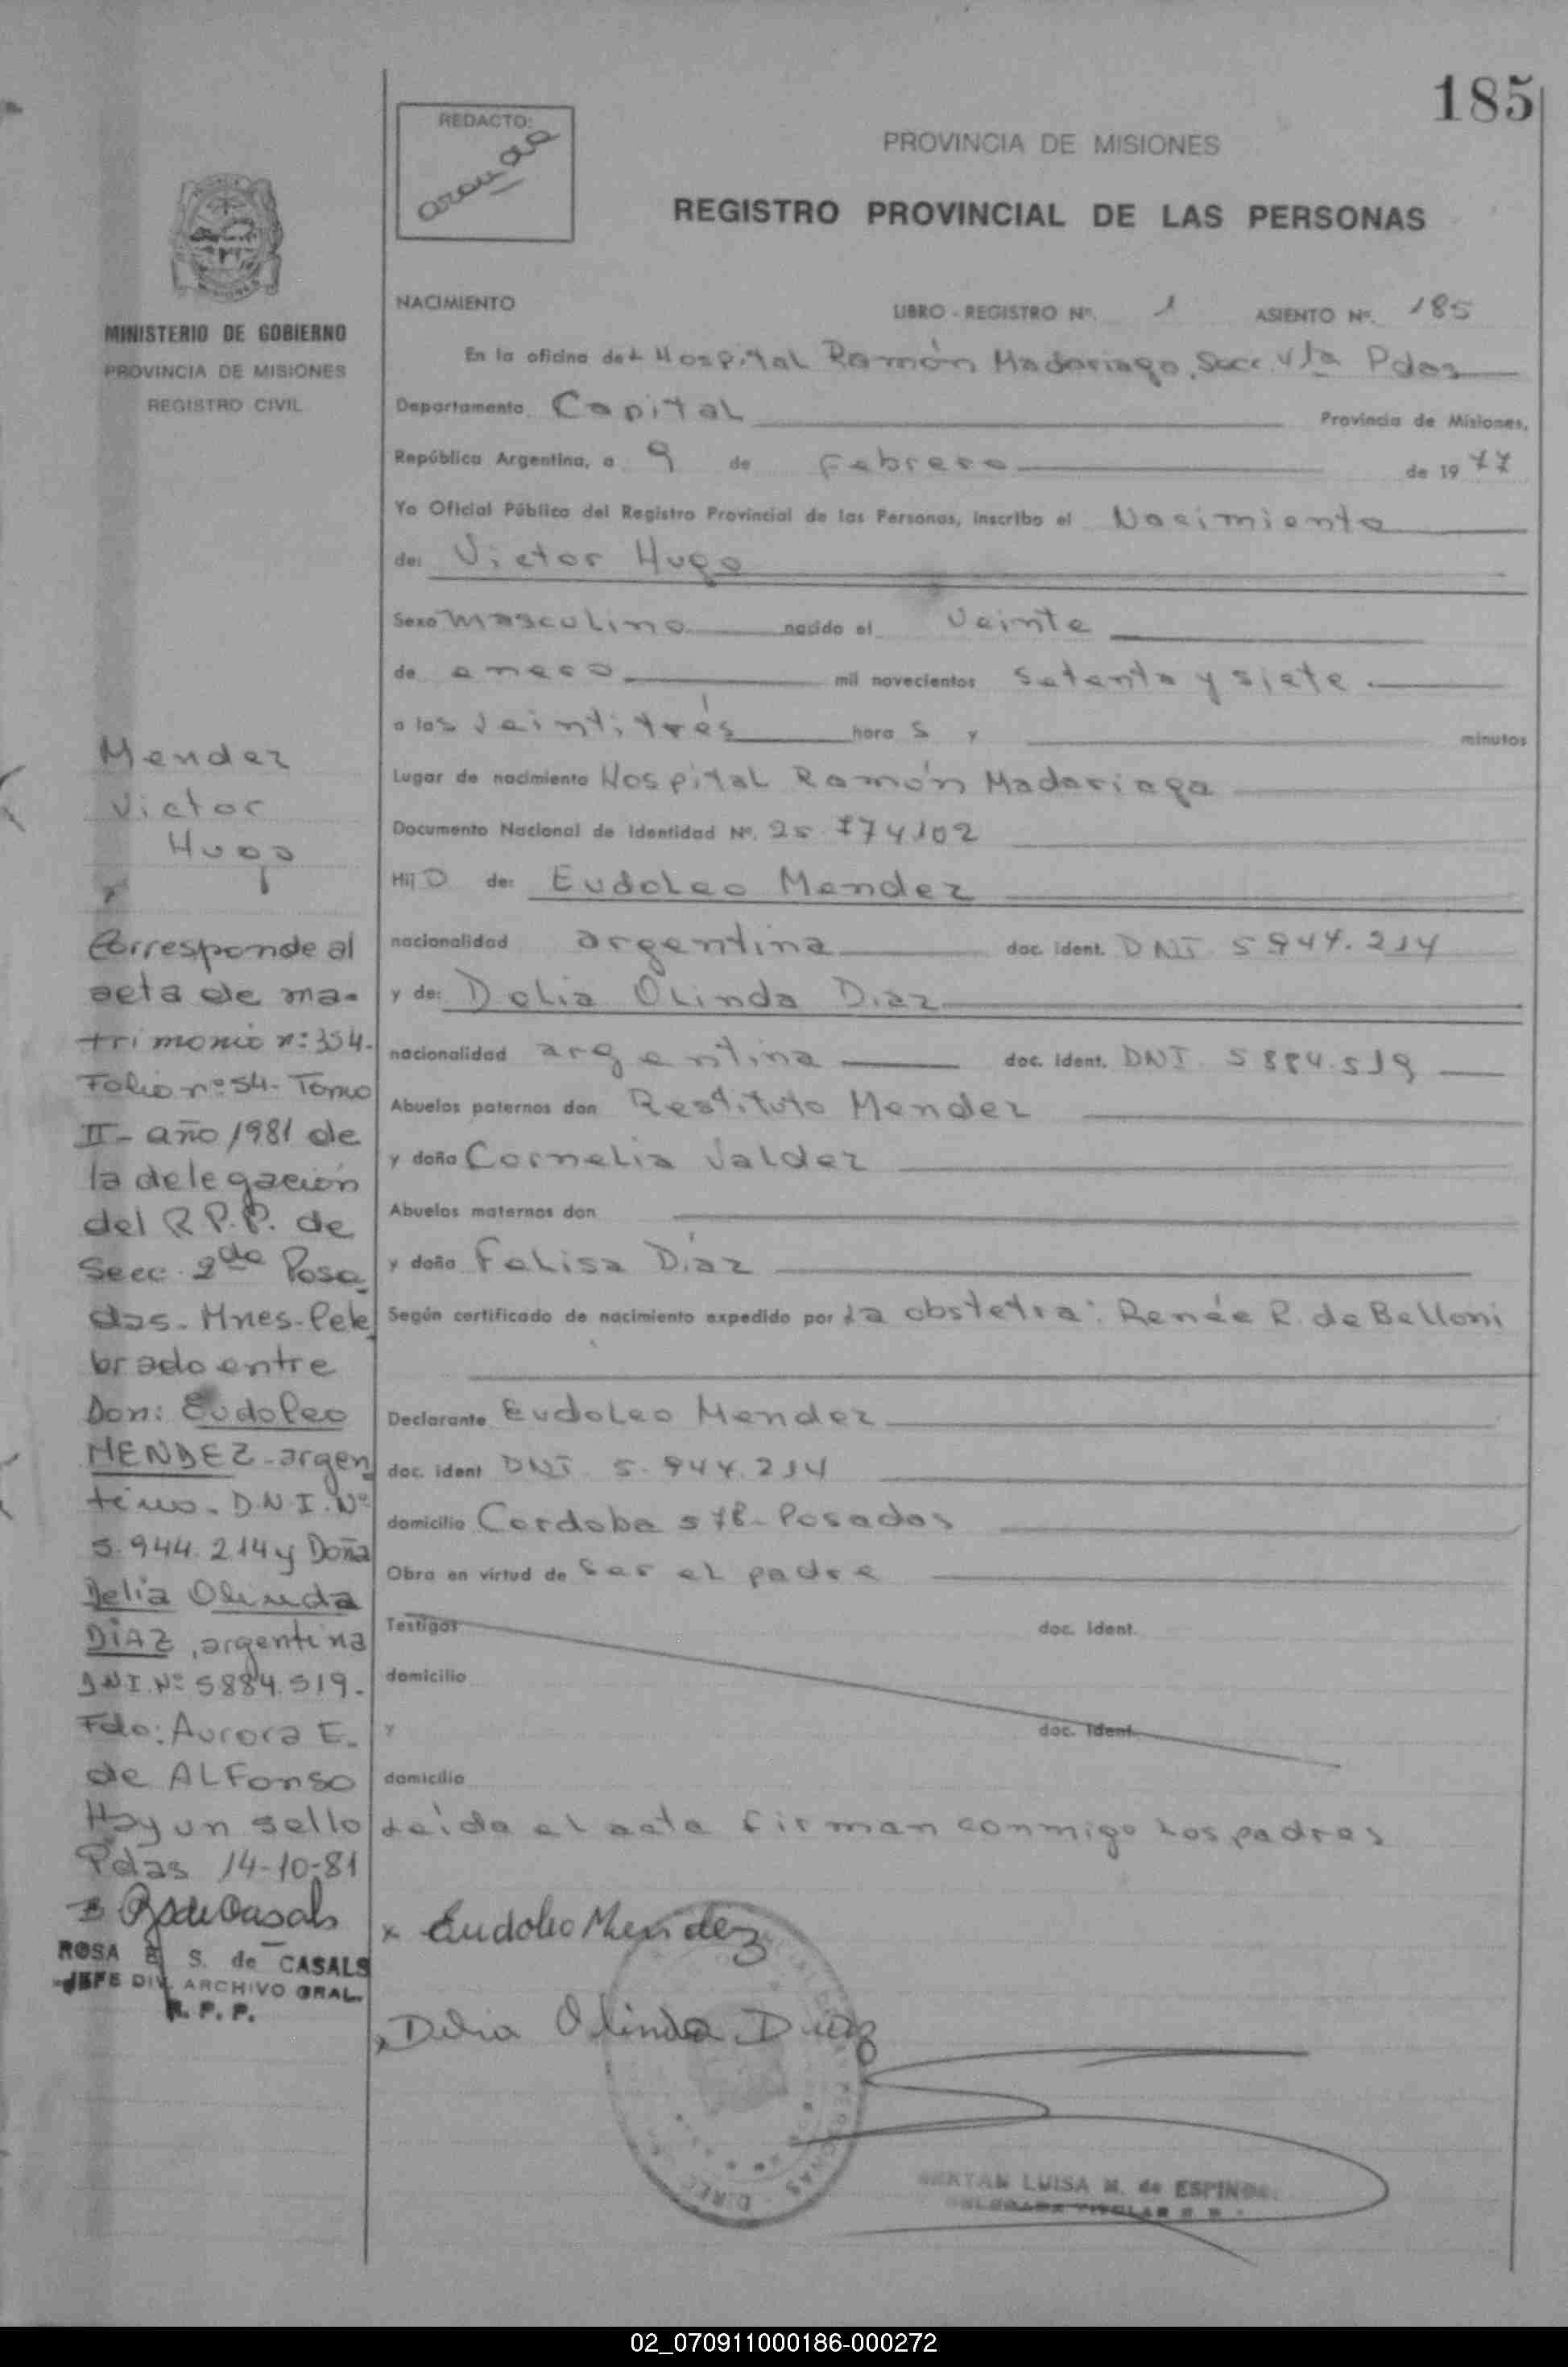 185
REDACTO:
PROVINCIA DE MISIONES
REGISTRO PROVINCIAL DE LAS PERSONAS
MINISTERIO DE GOBIERNO
PROVINCIA DE MISIONES
REGISTRO CIVIL
Mendez
Victor
Hugo
Corresponde al
acta de ma-
trimonio nº: 354.
Folio nº 54- Tomo
II- año 1981 de
la delegación
del R.P.P. de
Secc. 2da Posa
das- Mnes- Cele
brado entre
Don: Eudoleo
MENDEZ-argen
tino- D.N.I. Nº
5.944.214 y Doña
Delia Olinda
DIAZ, argentina
DNI. Nº 5884.519.
Fdo: Aurora E.
de ALFonso
Hay un sello
Pdas 14-10-81
ROSA E S. de CASALS
JEFE DIV. ARCHIVO GRAL.
R. P. P.
NACIMIENTO LIBRO - REGISTRO Nº. 1 ASIENTO Nº. 185
En la oficina del Hospital Ramón Madariaga, Secc. 4ta Pdas
Departamento Capital Provincia de Misiones,
República Argentina, a 9 de Febrero de 1977
Yo Oficial Público del Registro Provincial de las Personas, inscribo el Nacimiento
de: Victor Hugo
Sexo masculino nacido el veinte
de enero mil novecientos setenta y siete
a las veintitrés hora s y minutos
Lugar de nacimiento Hospital Ramón Madariaga
Documento Nacional de Identidad Nº. 25.774.102
Hij o de: Eudoleo Mendez
nacionalidad argentina doc. ident. DNI. 5944.214
y de: Delia Olinda Diaz
nacionalidad argentina doc. ident. DNI. 5884.519
Abuelos paternos don Restituto Mendez
y doña Cornelia Valdez
Abuelos maternos don
y doña Felisa Diaz
Según certificado de nacimiento expedido por la obstetra: Renée R. de Belloni
Declarante Eudoleo Mendez
doc. ident DNI. 5.944.214
domicilio Cordoba 578- Posadas
Obra en virtud de ser el padre
Testigos doc. ident.
domicilio
y doc. ident.
domicilio
Leída el acta firman conmigo los padres
x Eudoleo Mendez
x Delia Olinda Diaz
LUISA M. de ESPINO
02_070911000186-000272